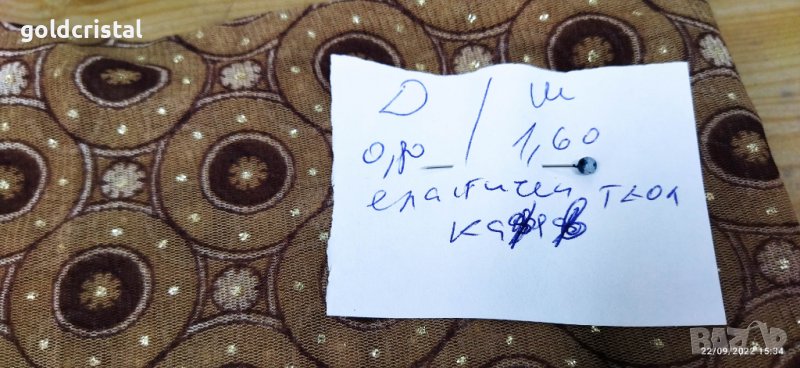 goldcristal
Д / Ш
0,80 1,60
еластичен ТЪОЛ
кафяв
BAZAR
22/09/2022 15:34